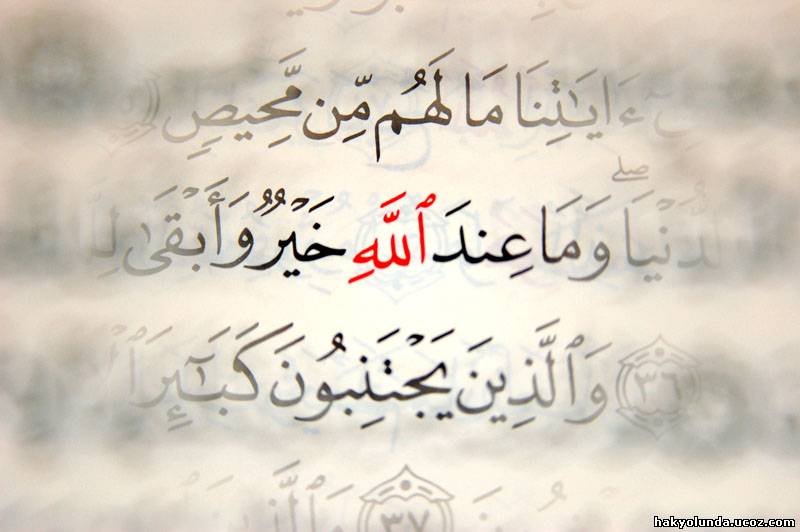 ءَايَٰتِنَا مَا لَهُم مِّن مَّحِيصٍ
ٱلدُّنْيَا ۖ وَمَا عِندَ ٱللَّهِ خَيْرٌ وَأَبْقَىٰ
٣٦ وَٱلَّذِينَ يَجْتَنِبُونَ كَبَٰٓئِرَ
٣٧ وَٱلَّذِينَ
hakyolunda.ucoz.com